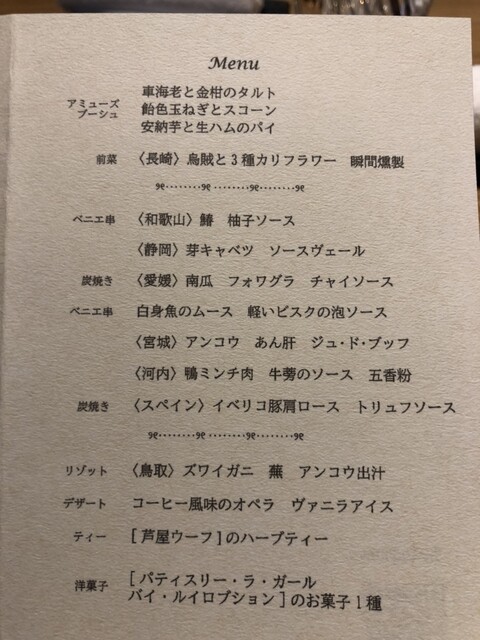 Menu
アミューズ ブーシュ 車海老と金柑のタルト
飴色玉ねぎとスコーン
安納芋と生ハムのパイ
前菜 〈長崎〉烏賊と3種カリフラワー 瞬間燻製
ベニエ串 〈和歌山〉鰆 柚子ソース
〈静岡〉芽キャベツ ソースヴェール
炭焼き 〈愛媛〉南瓜 フォワグラ チャイソース
ベニエ串 白身魚のムース 軽いビスクの泡ソース
〈宮城〉アンコウ あん肝 ジュ・ド・ブッフ
〈河内〉鴨ミンチ肉 牛蒡のソース 五香粉
炭焼き 〈スペイン〉イベリコ豚肩ロース トリュフソース
リゾット 〈鳥取〉ズワイガニ 蕪 アンコウ出汁
デザート コーヒー風味のオペラ ヴァニラアイス
ティー [芦屋ウーフ]のハーブティー
洋菓子 [パティスリー・ラ・ガール
バイ・ルイロブション]のお菓子1種